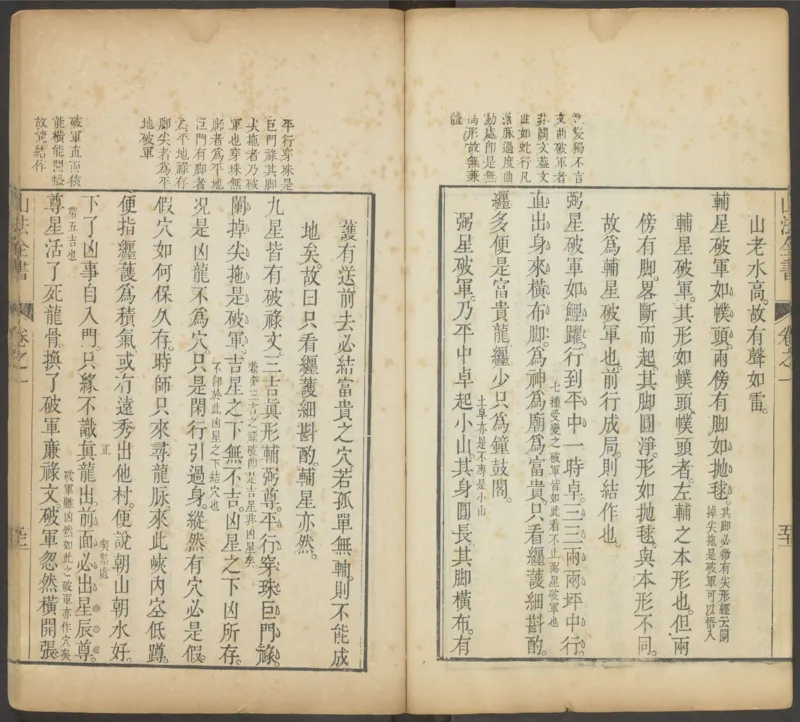 山老水高。故有聲如雷。
輔星破軍如幞頭。兩傍有脚如拋毬。其脚必微有尖形經云闢掉尖拖是破軍可以悟入
輔星破軍。其形如幞頭。幞頭者。左輔之本形也。但兩
傍有脚。畧斷而起。其脚圓淨。形如拋毬。與本形不同。
故爲輔星破軍也。前行成局。則結作也。
弼星破軍如鯉躍。行到平中一時卓。三三兩兩坪中行。七種受變之破軍皆如此看不止弼星破軍也
直出身來橫布脚。爲神爲廟爲富貴。只看纒護細斟酌。
纒多便是富貴龍。纒少只爲鐘鼓閣。土阜亦是不專是小山
弼星破軍。乃平中卓起小山。其身圓長。其脚橫布。有
變獨不言
支曲破軍者
非闕文蓋文
曲如蛇行凡
落脉過度曲
動處即是無
尚形故無兼
山法全書
卷之一
護有送。前去必結富貴之穴。若孤單無輔。則不能成
地矣。故曰只看纒護細斟酌。輔星亦然。
九星皆有破祿文。三吉眞形輔弼尊。平行穿珠巨門祿。
闢掉尖拖是破軍。吉星之下無不吉。凶星之下凶所存。
況是凶龍不爲穴。只是閑行引過身。縱然有穴必是假。
假穴如何保久存。時師只來尋龍脈。來此峽內空低蹲。
便指纒護爲積氣。或有遠秀出他村。便說朝山朝水好。
下了凶事自入門。只緣不識眞龍出。前面必出星辰尊。
尊星活了死龍骨。換了破軍廉祿文。破軍忽然橫開張。
平行穿珠是
巨門祿其脚
尖拖者乃破
軍也穿珠無
脚者爲平地
巨門有脚者
爲平地祿存
脚尖者爲平
地破軍
破軍直而狹
能橫能開帳
故能結作
山法全書
卷之一